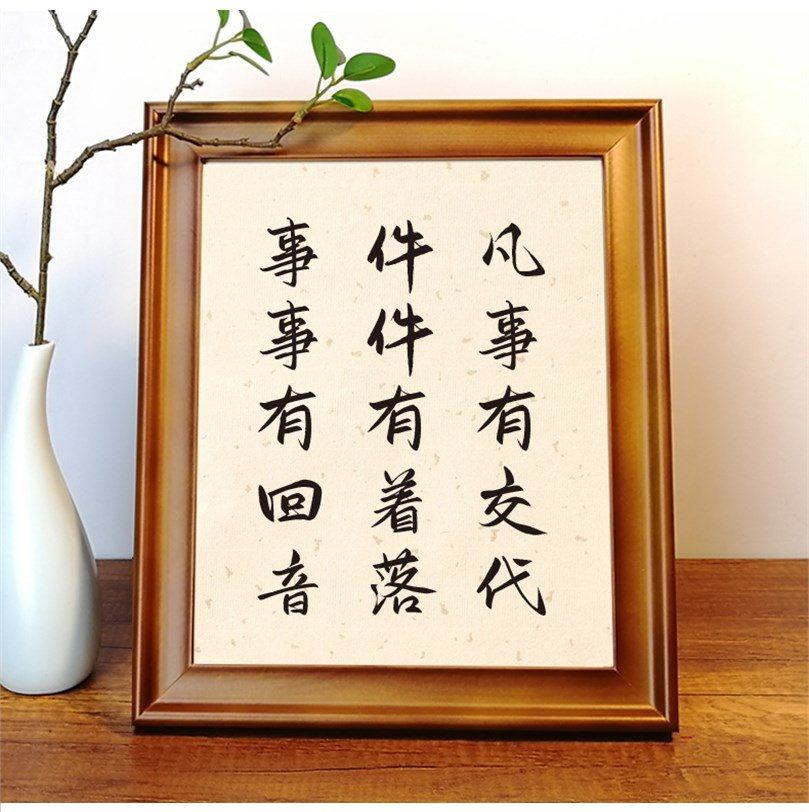 凡事有交代
件件有着落
事事有回音